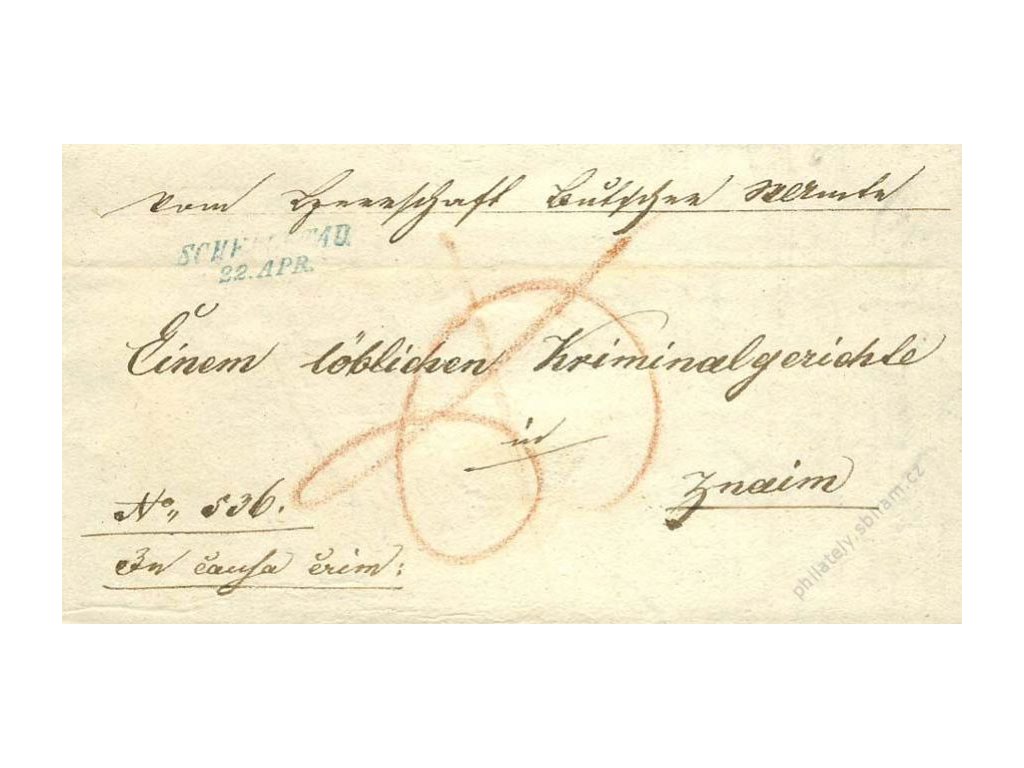 Vom Herrschaft Butscher Amte
22. APR.
Einem löblichen Kriminalgerichte
in
Znaim
No. 536.
In causa crim:
philately.sbiram.cz